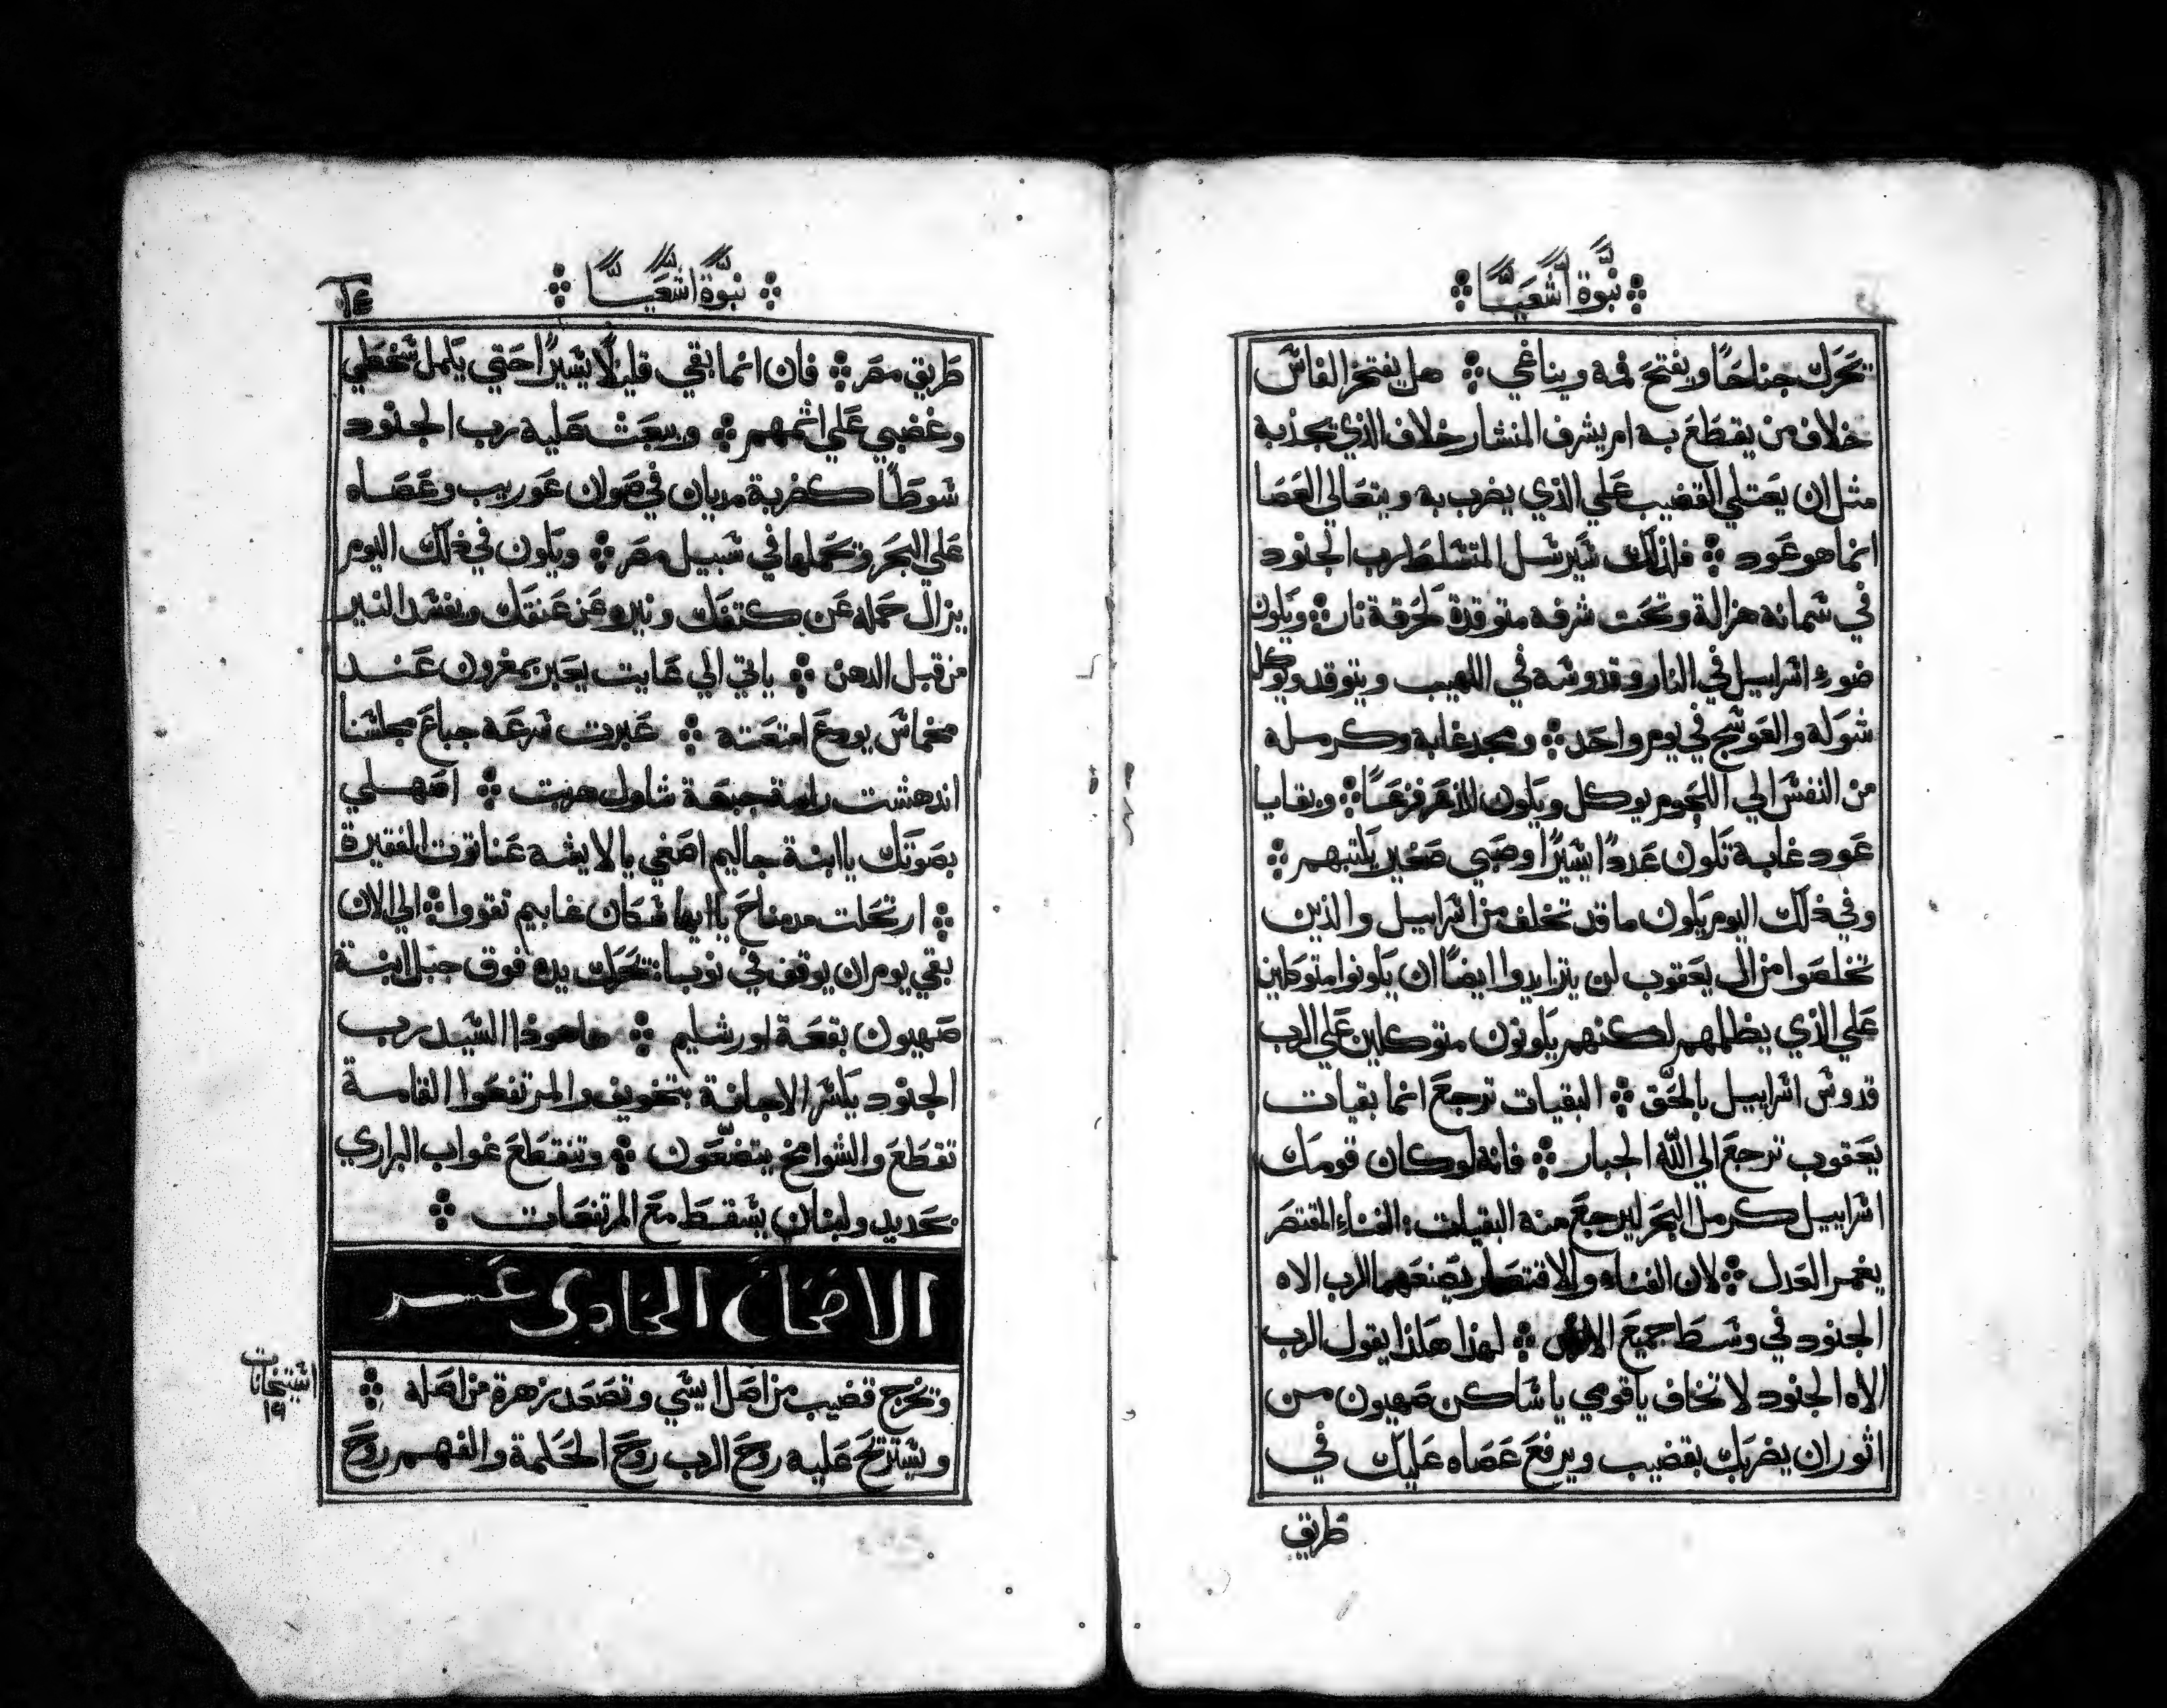 نبوة اشعيا
تحرك جناحًا ويفتح فمه ويناغي هل يفتخر الفاس
خلاف من يقطع به ام يشرف المنشار خلاف الذي يجذبه
مثل ان يعتلي القضيب علي الذي يضرب به ويتعالي العصا
انما هو عود فلذلك سيرسل المتسلط رب الجنود
في سمانه هزالة وتحت شرفه متوقدة كحرقة نار ويكون
ضوء اسراييل في النار وقدوسه في اللهيب ويتوقد ويوكل
شوكه والعوسج في يوم واحد ومجد غابه وكرمله
من النفس الي اللحوم يوكل ويكون للذعر فزعًا وبقايا
عود غابه تكون عددًا يسيرًا وصبي صغير يكتبهم
وفي ذلك اليوم يكون ما قد تخلف من اسراييل والذين
تخلصوا من ال يعقوب لن يتزايدوا ايضًا ان يكونوا متوكلين
علي الذي يظلمهم لكنهم يكونون متوكلين علي الرب
قدوس اسراييل بالحق البقيات ترجع انما بقيات
يعقوب ترجع الي الله الجبار فانه لو كان قومك
اسراييل كرمل البحر ليرجع منه البقيات الفناء المقتصر
يغمر العدل لان الفناء والاقتصار يصنعهما الرب الاه
الجنود في وسط جميع الارض لهذا هكذا يقول الرب
الاه الجنود لا تخاف يا قومي يا ساكن صهيون من
اثور ان يضربك بقضيب ويرفع عصاه عليك في
طريق
نبوة اشعيا
٦٤
طريق مصر فان انما بقي قليلاً يسيرًا حتي يكمل سخطي
وغضبي علي اثمهم ويبعث عليه رب الجنود
سوطًا كضربة مديان في صوان عوريب وعصاه
علي البحر وتحملها في سبيل مصر ويكون في ذلك اليوم
يزال حمله عن كتفك ونيره عن عنقك ويفسد النير
من قبل الدهن ياتي الي عايت يعبر بمغرون عند
مخماس يودع امتعته عبرت سرعه جباع مجلسنا
اندهشت رامة جبعة شاول هربت اصهلي
بصوتك يا ابنة جاليم اصغي يا لايشه عناتوت الفقيرة
ارتحلت مدمناح يا ايها سكان غابيم تقووا الي الان
بقي يوم ان يوقف في نوبا تحرك يده فوق جبل ابنة
صهيون بقعة اورشليم ها هوذا السيد رب
الجنود يكسر الاجانة بتخويف والمرتفعوا القامسة
تقطع والشوامخ يتضعون وتنقطع غواب البراري
بحديد ولبنان يسقط مع المرتفعات
الاصحاح الحادي عسر
وتخرج قضيب من اصل ايسي وتصعد زهرة من اصله
استيخانات
١٩
ويستريح عليه روح الرب روح الحكمة والفهم روح